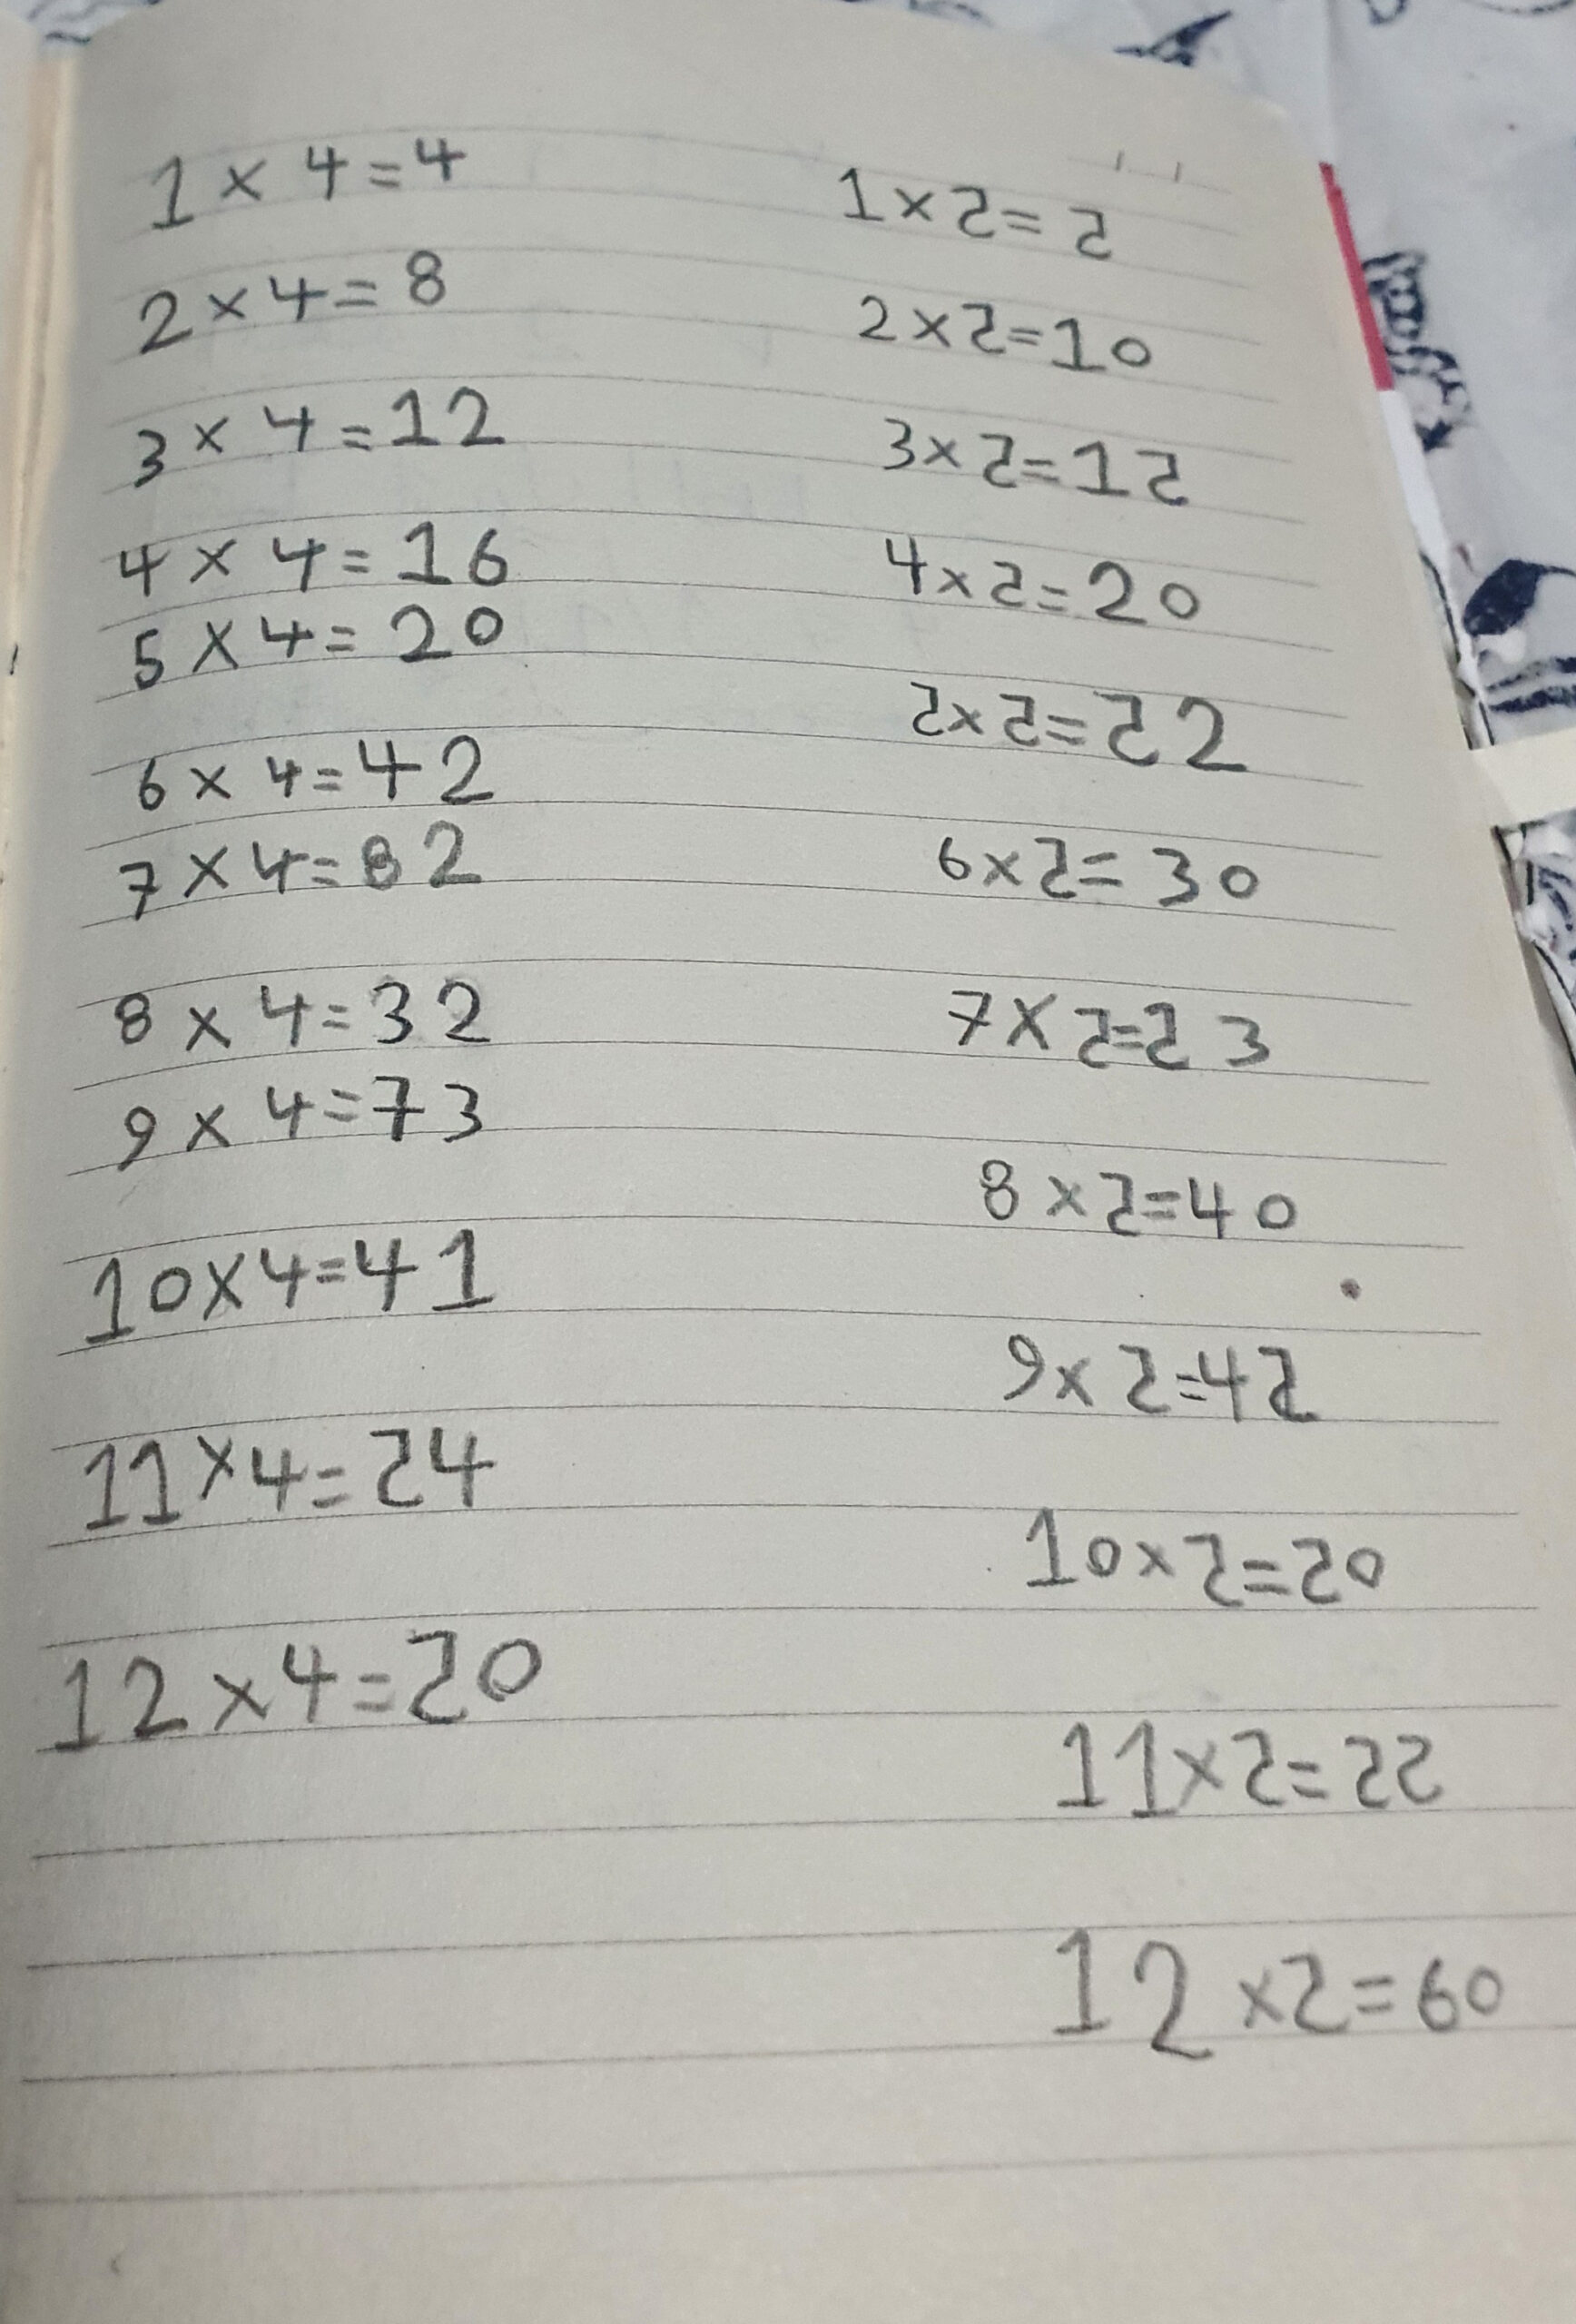 1 × 4 = 4
2 × 4 = 8
3 × 4 = 12
4 × 4 = 16
5 × 4 = 20
6 × 4 = 42
7 × 4 = 82
8 × 4 = 32
9 × 4 = 73
10 × 4 = 41
11 × 4 = 24
12 × 4 = 20
1 × 2 = 2
2 × 2 = 10
3 × 2 = 12
4 × 2 = 20
2 × 2 = 22
6 × 2 = 30
7 × 2 = 23
8 × 2 = 40
9 × 2 = 42
10 × 2 = 20
11 × 2 = 22
12 × 2 = 60